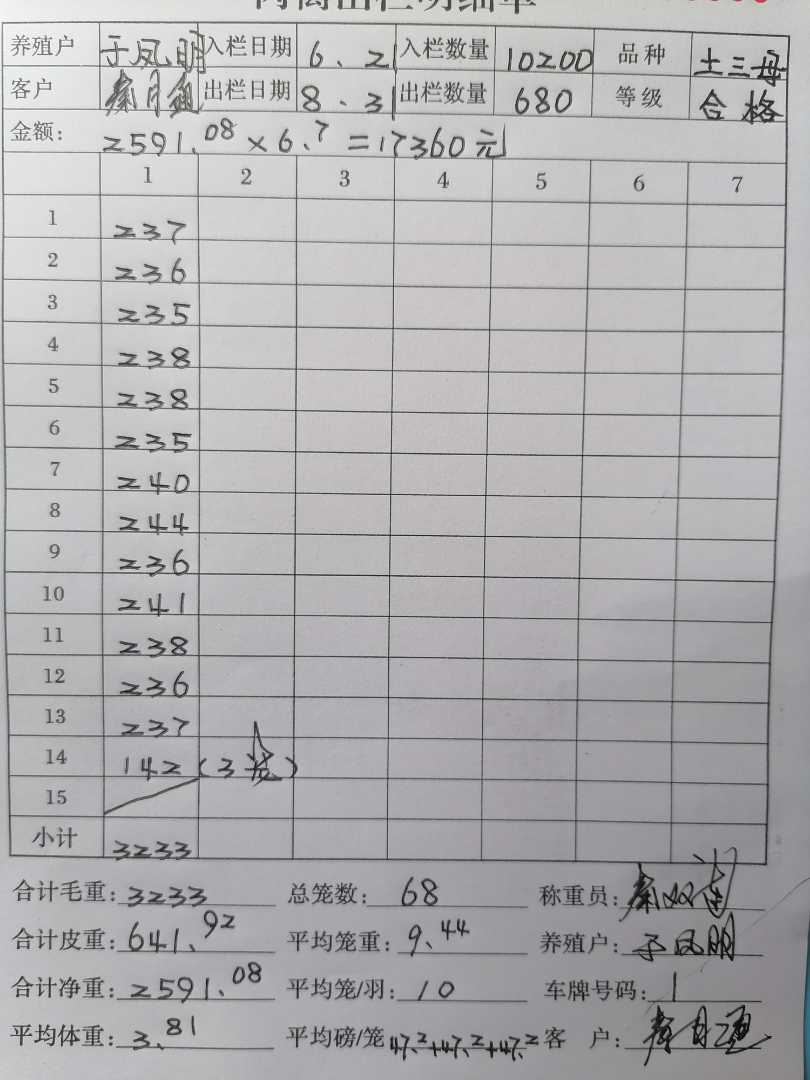 养殖户 于凤明 入栏日期 6.21 入栏数量 10200 品种 土三母
客户 出栏日期 8.31 出栏数量 680 等级 合格
金额: 2591.08×6.7=17360元
1 2 3 4 5 6 7
1 237
2 236
3 235
4 238
5 238
6 235
7 240
8 244
9 236
10 241
11 238
12 236
13 237
14 142(3笼)
15
小计 3233
合计毛重: 3233 总笼数: 68 称重员:
合计皮重: 641.92 平均笼重: 9.44 养殖户: 于凤明
合计净重: 2591.08 平均笼/羽: 10 车牌号码: 1
平均体重: 3.81 平均磅/笼 47.2+47.2+47.2 客 户: